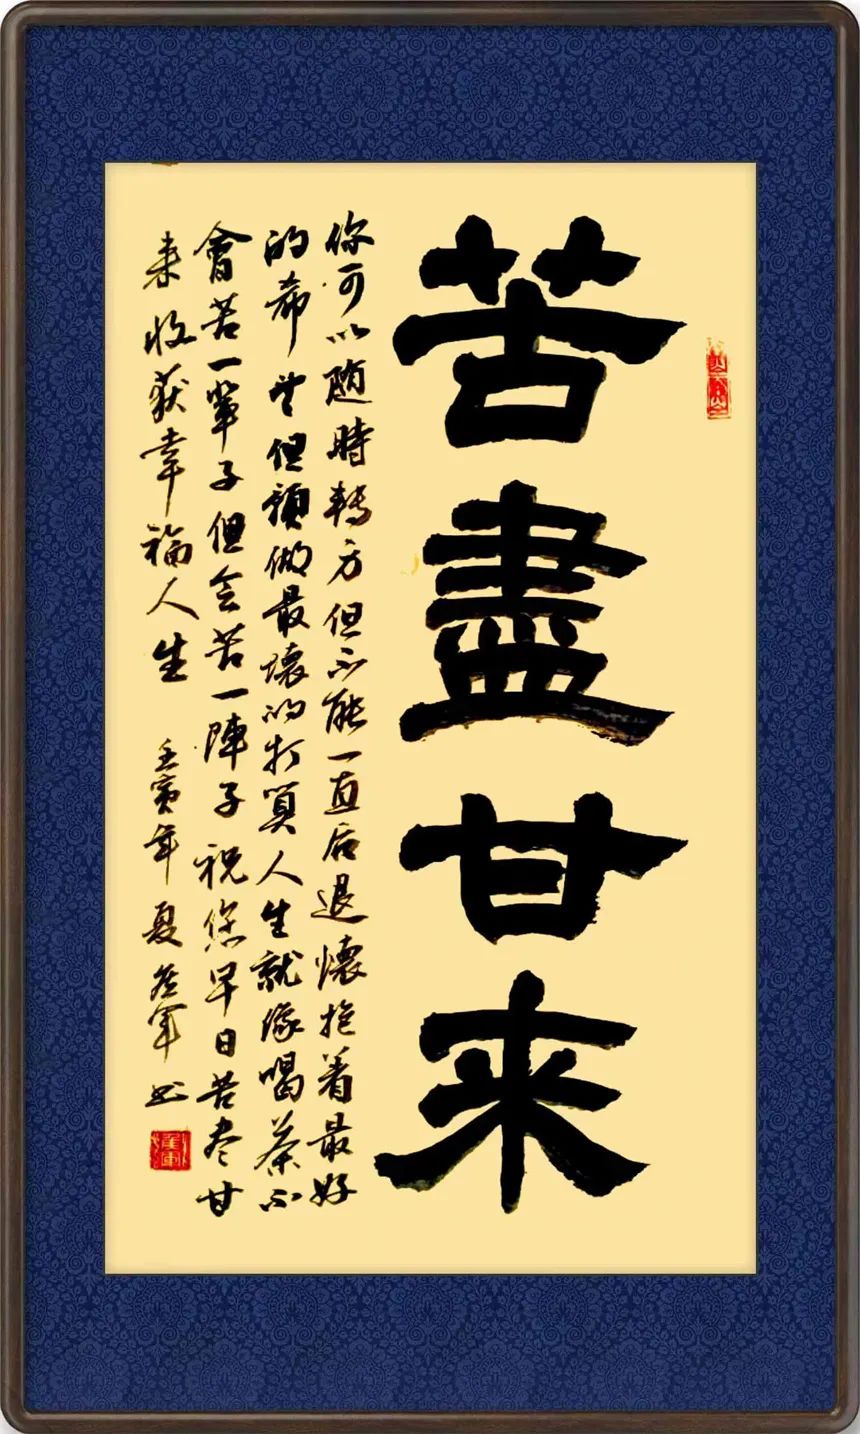 苦盡甘来
你可以随時轉方但不能一直后退懷抱着最好
的希望但預做最壞的打算人生就像喝茶不
會苦一輩子但会苦一陣子祝您早日苦尽甘
来收获幸福人生
壬寅年夏军书